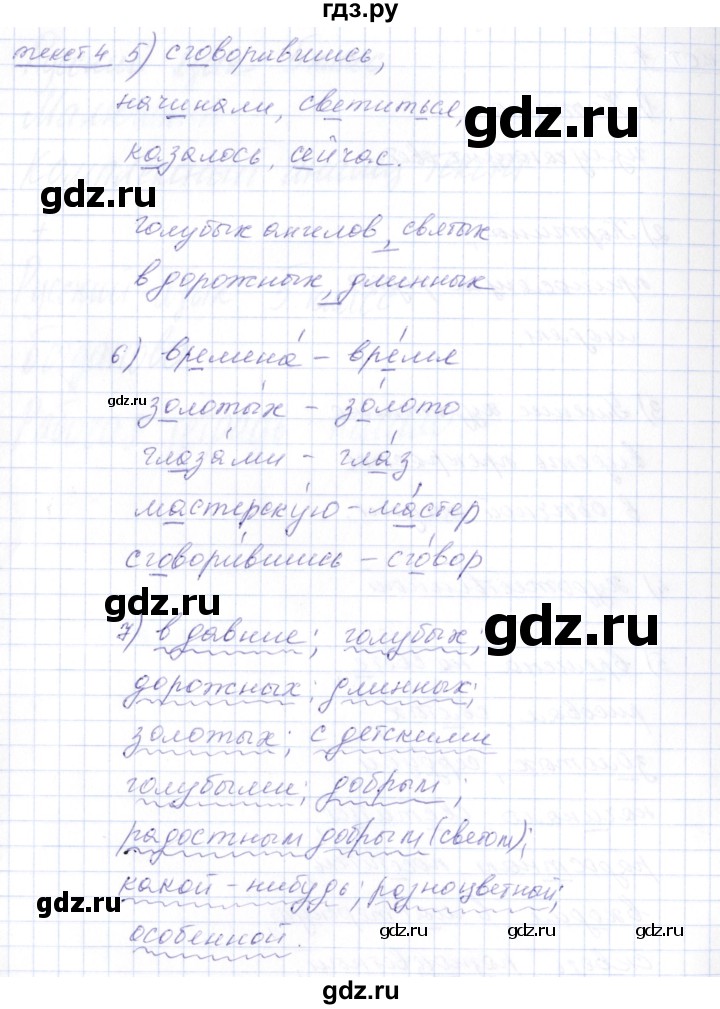 гдз.ру
текст 4 5) сговорившись,
начинали, светиться,
gdz.ru
казалось, сейчас.
gdz.ru
голубых ангелов, святых
в дорожных, длинных
6) временá – врéмя
gdz.ru
золоты́х – зóлото
глазáми – глáз
мастерску́ю – мáстер
сговори́вшись – сгóвор
gdz.ru
gdz.ru
7) в давние; голубых;
дорожных; длинных;
золотых; с детскими
голубыми; добрым;
радостным добрым (светом);
gdz.ru
какой-нибудь; разноцветной;
особенной.
gdz.ru gdz.ru gdz.ru
gdz.ru